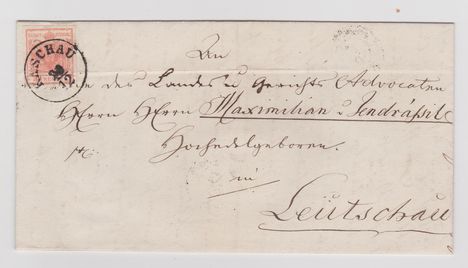 KASCHAU
An
des Landes u Gerichts Advocaten
Herrn Herrn Maximilian v Jendrássik
Hochedelgeboren.
in
Leutschau